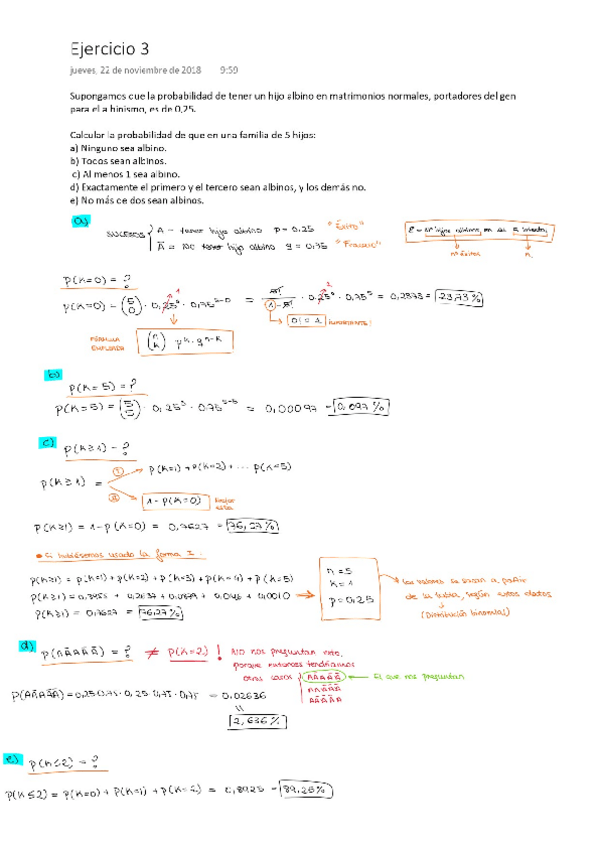 Ejercicio 3
jueves, 22 de noviembre de 2018 9:59
Supongamos que la probabilidad de tener un hijo albino en matrimonios normales, portadores del gen
para el albinismo, es de 0,25.
Calcular la probabilidad de que en una familia de 5 hijos:
a) Ninguno sea albino.
b) Todos sean albinos.
c) Al menos 1 sea albino.
d) Exactamente el primero y el tercero sean albinos, y los demás no.
e) No más de dos sean albinos.
a)
SUCESOS { A = tener hijo albino p = 0.25 "Éxito"
Ā = no tener hijo albino q = 0.75 "Fracaso"
nº éxitos n
P(K=0) = ?
P(K=0) = (5 0) · 0,25⁰ · 0,75⁵⁻⁰ = · 0,25⁰ · 0,75⁵ = 0,2373 = 23,73%
0! = 1 ¡IMPORTANTE!
FÓRMULA
EMPLEADA
(n k) p^k · q^n-k
b)
P(K=5) = ?
P(K=5) = (5 5) · 0,25⁵ · 0,75⁵⁻⁵ = 0,00097 = 0,097%
c)
P(K≥1) = ?
① P(K=1) + P(K=2) + ... P(K=5)
P(K≥1) =
② 1 - P(K=0)
P(K≥1) = 1 - P(K=0) = 0,7627 = 76,27%
• Si hubiésemos usado la forma 1.
P(K≥1) = P(K=1) + P(K=2) + P(K=3) + P(K=4) + P(K=5)
P(K≥1) = 0,3955 + 0,2637 + 0,0879 + 0,0146 + 0,0010
P(K≥1) = 0,7627 = 76,27%
n = 5
K = 1
p = 0,25
Los valores se sacan a partir
de la tabla, según estos datos
(Distribución binomial)
d)
P(AĀAĀĀ) = ? ≠ P(K=2) ! NO nos preguntan esto,
porque entonces tendríamos
otros casos { AĀAĀĀ ← El que nos preguntan
P(AĀAĀĀ) = 0,25·0,75·0,25·0,75·0,75 = 0.02636
2,636%
e)
P(K≤2) = ?
P(K≤2) = P(K=0) + P(K=1) + P(K=2) = 0,8925 = 89,25%